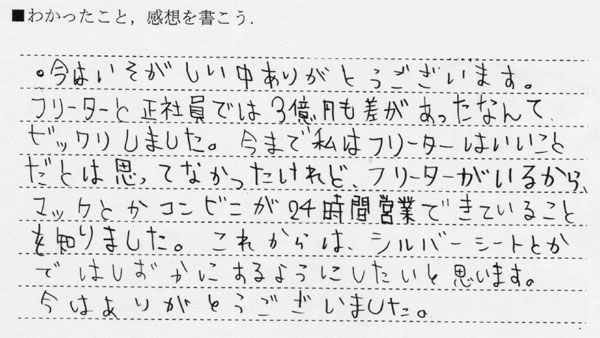 ■わかったこと，感想を書こう．
。今はいそがしい中ありがとうございます。
フリーターと正社員では3億円も差があったなんて、
ビックリしました。今まで私はフリーターはいいこと
だとは思ってなかったけれど、フリーターがいるから、
マックとかコンビニが24時間営業できていること
を知りました。これからは、シルバーシートとか
ではしずかにするようにしたいと思います。
今はありがとうございました。